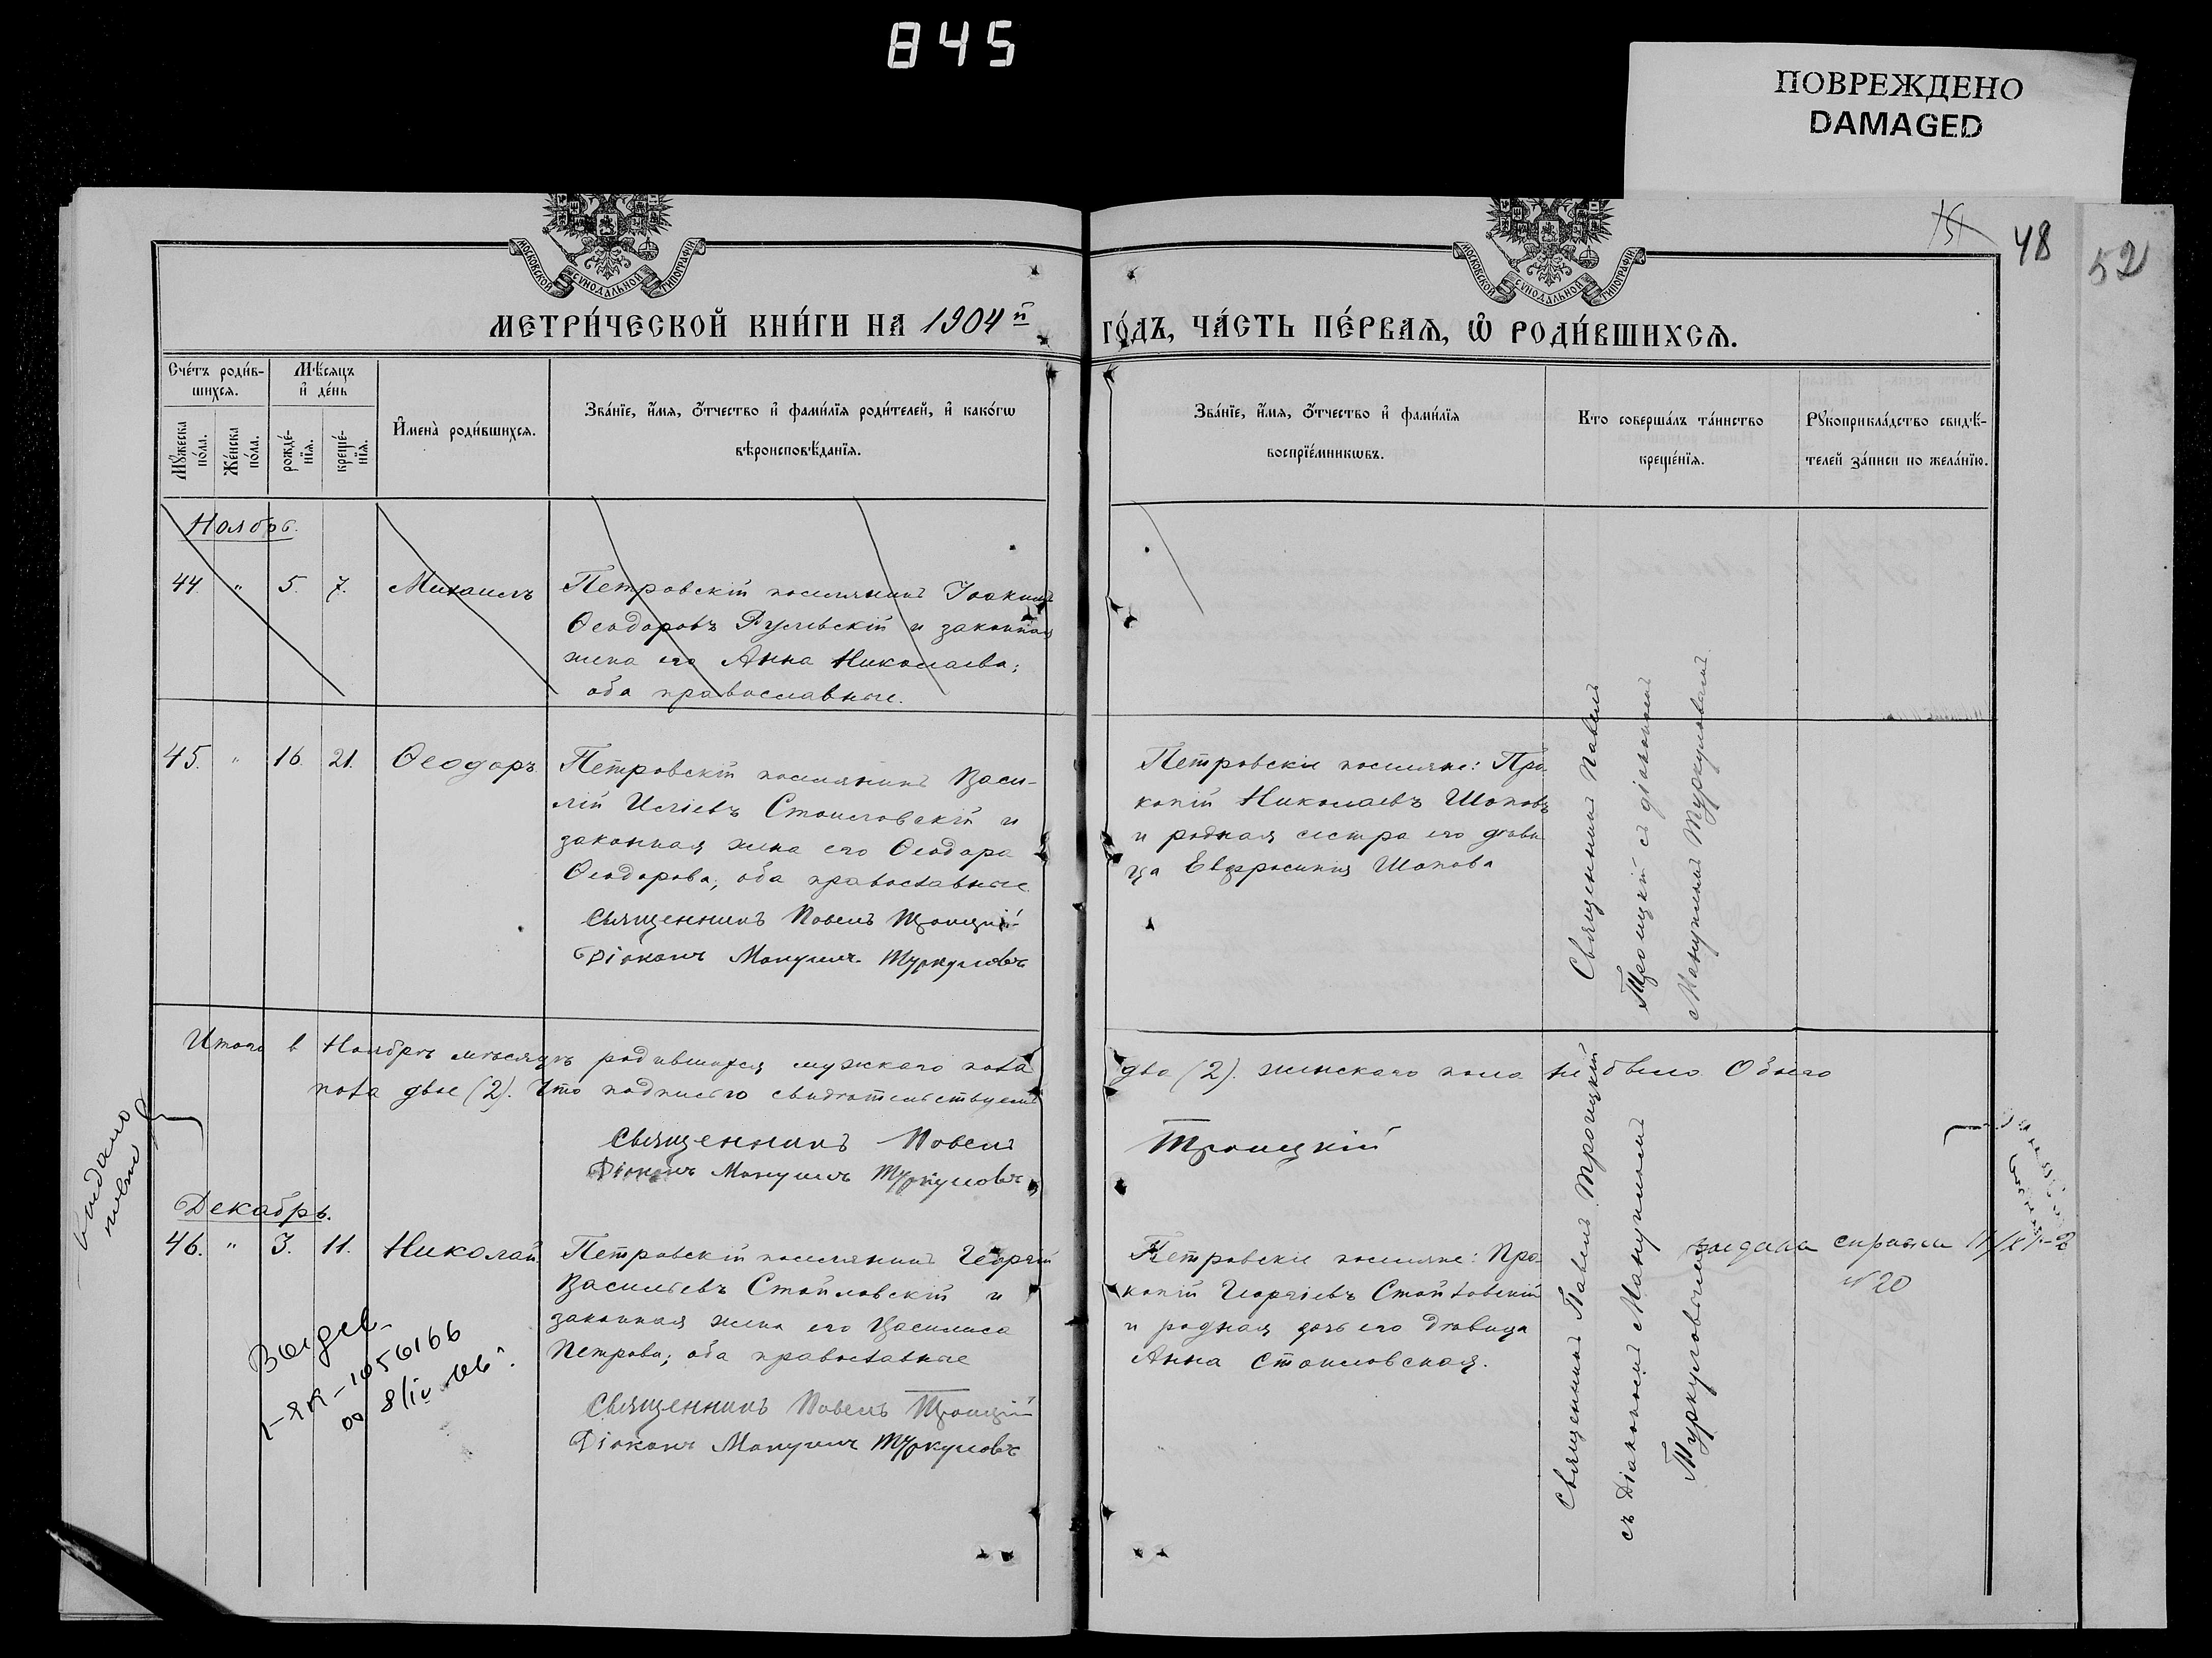 845
ПОВРЕЖДЕНО
DAMAGED
48
52
МОСКОВСКОЙ СѴНОДАЛЬНОЙ ТИПОГРАФІИ
МОСКОВСКОЙ СѴНОДАЛЬНОЙ ТИПОГРАФІИ
МЕТРИ́ЧЕСКОЙ КНИ́ГИ НА 1904й ГО́ДЪ, ЧА́СТЬ ПЕ́РВАѦ, Ѽ РОДИ́ВШИХСѦ.
Сче́тъ роди́в-
шихсѧ.
Мѣ́сѧцъ
и҆ де́нь
Мꙋ́жеска
по́ла.
Же́нска
по́ла.
рожде́-
нїѧ.
креще́-
нїѧ.
И҆мена̀ роди́вшихсѧ.
Зва́нїе, и҆́мѧ, ѻ҆́тчество и҆ фами́лїѧ роди́телей, и҆ како́гѡ
вѣроисповѣ́данїѧ.
Зва́нїе, и҆́мѧ, ѻ҆́тчество и҆ фами́лїѧ
воспрїе́мникѡвъ.
Кто соверша́лъ та́инство
креще́нїѧ.
Рꙋкоприкла́дство свидѣ́-
телей за́писи по жела́нїю.
Ноябрь.
44. " 5. 7. Михаилъ
Петровскій поселянинъ Іоакимъ
Ѳеодоровъ Русевскій и законная
жена его Анна Николаева;
оба православные.
45. " 16. 21. Ѳеодоръ
Петровскій поселянинъ Васи-
лій Иліевъ Стоиловскій и
законная жена его Ѳеодора
Ѳеодорова; оба православные.
Священникъ Павелъ Троицкій
Діаконъ Мануилъ Туркуловъ
Петровскіе поселяне: Про-
копій Николаевъ Шоповъ
и родная сестра его дѣви-
ца Евфросинія Шопова
Священникъ Павелъ
Троицкій съ діакономъ
Мануиломъ Туркуловымъ
Итого в Ноябрѣ мѣсяцѣ родившихся мужскаго пола два (2). женскаго пола не было Обоего
пола двое (2). Что подписью свидѣтельствуемъ
Священникъ Павелъ Троицкій
Діаконъ Мануилъ Туркуловъ
Декабрь.
46. " 3. 11. Николай.
Петровскій поселянинъ Георгій
Васильевъ Стойловскій и
законная жена его Василиса
Петрова; оба православные
Священникъ Павелъ Троицкій
Діаконъ Мануилъ Туркуловъ
Петровскіе поселяне: Про-
копій Георгіевъ Стойловскій
и родная дочь его дѣвица
Анна Стоиловская.
Священникъ Павелъ Троицкій
съ Діакономъ Мануиломъ
Туркуловымъ
выдана справка
№ 20
1-ЯК-1056166